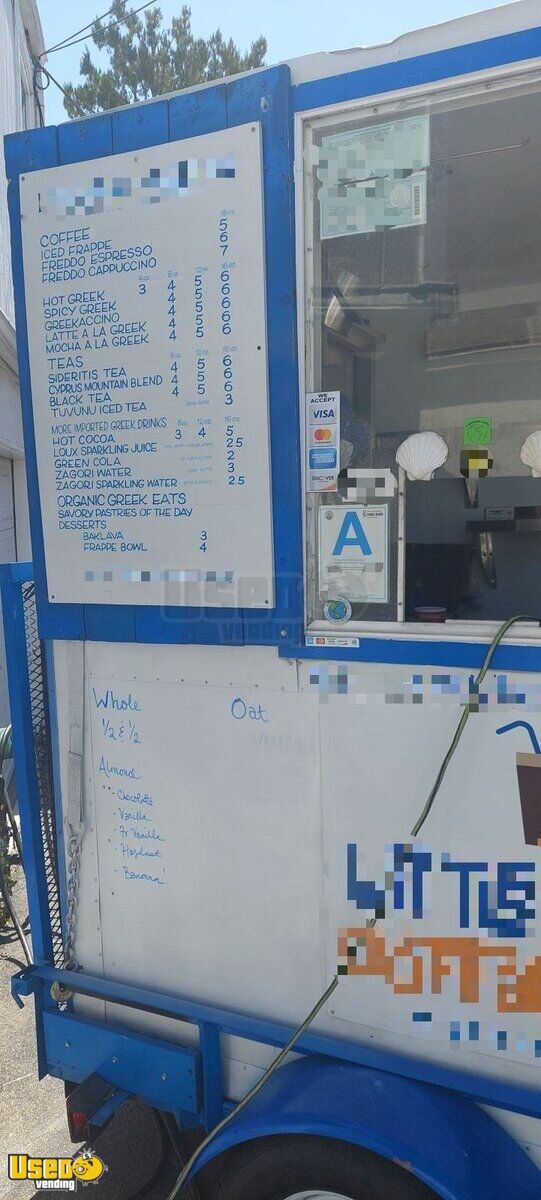 16 oz
COFFEE 5
ICED FRAPPE 6
FREDDO ESPRESSO 7
FREDDO CAPPUCCINO
4 oz 8 oz 12 oz 16 oz
HOT GREEK 3 4 5 6
SPICY GREEK 4 5 6
GREEKACCINO 4 5 6
LATTE A LA GREEK 4 5 6
MOCHA A LA GREEK 4 5 6
TEAS 8 oz 12 oz 16 oz
SIDERITIS TEA 4 5 6
CYPRUS MOUNTAIN BLEND 4 5 6
BLACK TEA 4 5 6
TUVUNU ICED TEA glass bottle 3
MORE IMPORTED GREEK DRINKS 8 oz 12 oz 16 oz
HOT COCOA 3 4 5
LOUX SPARKLING JUICE 2.5
GREEN COLA 2
ZAGORI WATER glass bottle 3
ZAGORI SPARKLING WATER 2.5
ORGANIC GREEK EATS
SAVORY PASTRIES OF THE DAY
DESSERTS
BAKLAVA 3
FRAPPE BOWL 4
WE ACCEPT
VISA
MasterCard
DISCOVER
A
Whole
1/2 & 1/2
Oat
Almond
- Chocolate
- Vanilla
- Fr Vanilla
- Hazelnut
- Banana!
LITTLE
Used
vending
Used
vending